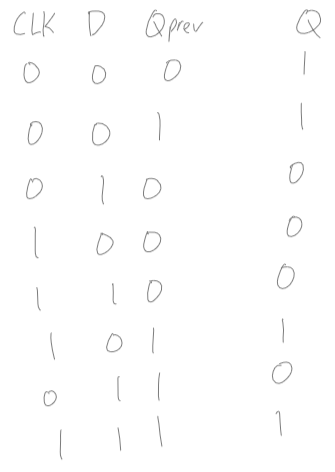 CLK D Qprev Q
0 0 0 1
0 0 1 1
0 1 0 0
1 0 0 0
1 1 0 0
1 0 1 1
0 1 1 0
1 1 1 1